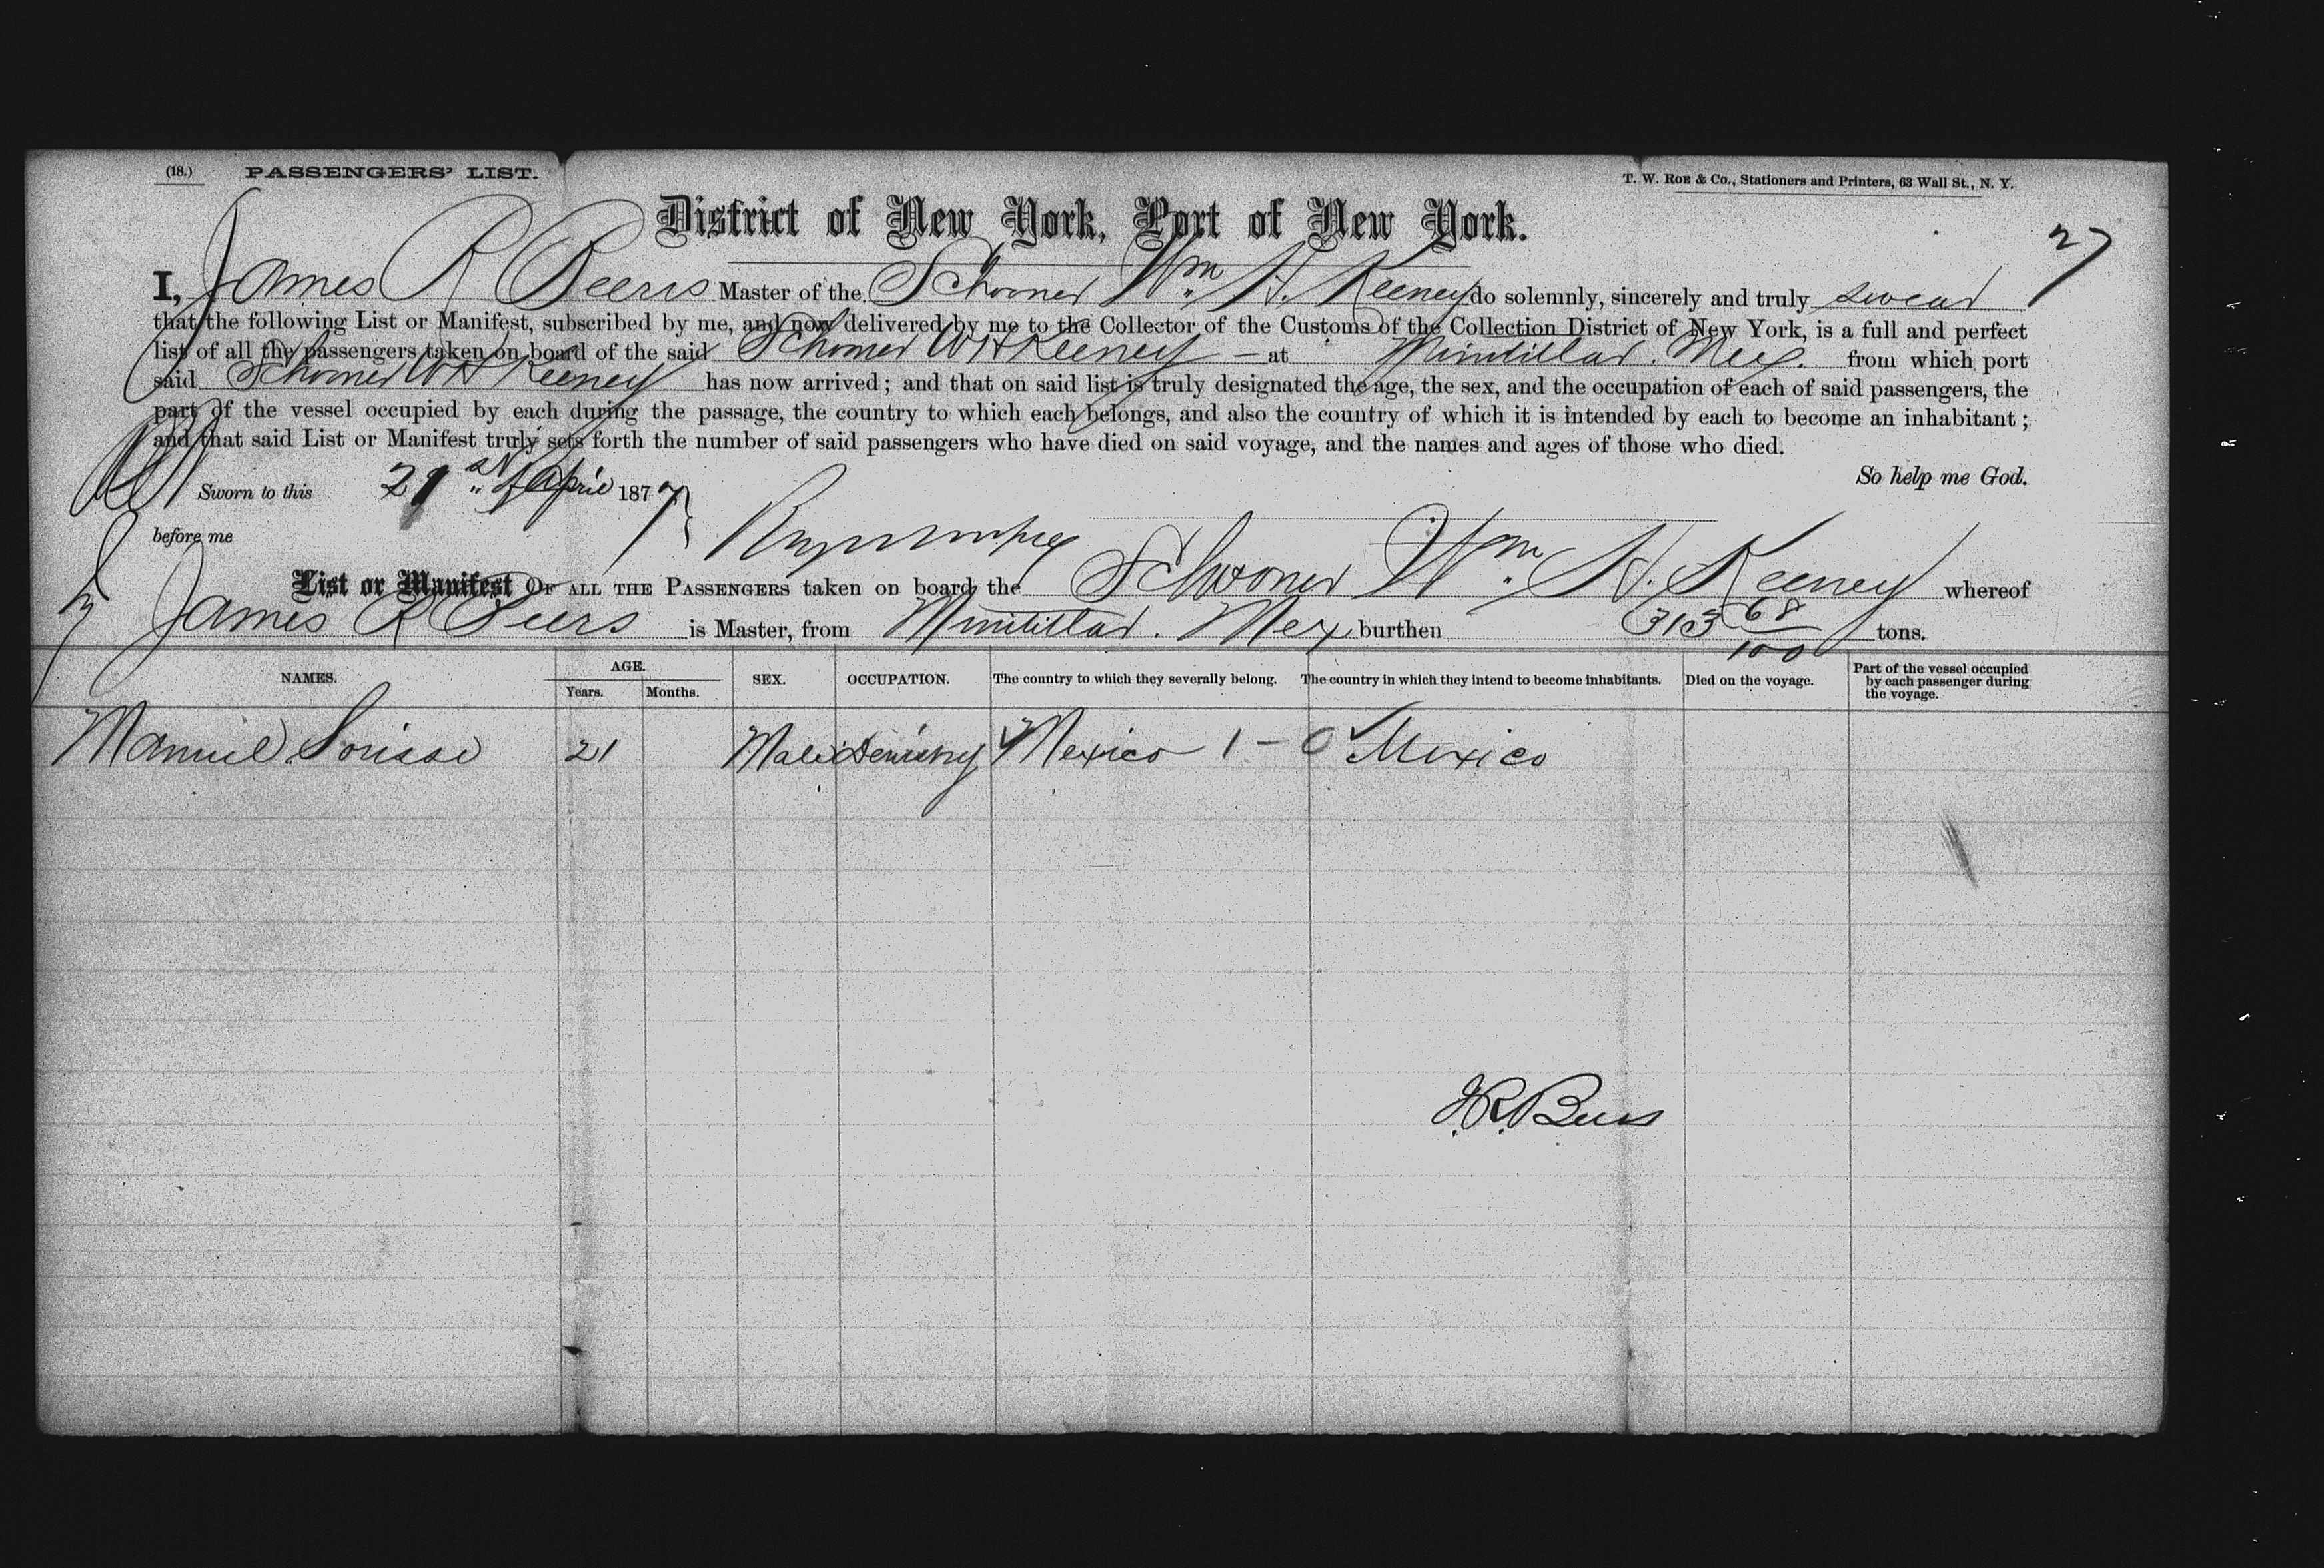 (18.) PASSENGERS' LIST.
T. W. ROE & Co., Stationers and Printers, 63 Wall St., N. Y.
District of New York, Port of New York.
27
I, James R Beers Master of the Schooner Wm. H. Keeney do solemnly, sincerely and truly swear
that the following List or Manifest, subscribed by me, and now delivered by me to the Collector of the Customs of the Collection District of New York, is a full and perfect
list of all the passengers taken on board of the said Schooner W H Keeney at Minitillar. Mex. from which port
said Schooner W H Keeney has now arrived; and that on said list is truly designated the age, the sex, and the occupation of each of said passengers, the
part of the vessel occupied by each during the passage, the country to which each belongs, and also the country of which it is intended by each to become an inhabitant;
and that said List or Manifest truly sets forth the number of said passengers who have died on said voyage, and the names and ages of those who died.
So help me God.
Sworn to this 21st April 1877
before me
List or Manifest OF ALL THE PASSENGERS taken on board the Schooner Wm. H. Keeney whereof
James R Beers is Master, from Minitillar. Mex burthen 313 68/100 tons.
NAMES. AGE. Years. Months. SEX. OCCUPATION. The country to which they severally belong. The country in which they intend to become inhabitants. Died on the voyage. Part of the vessel occupied by each passenger during the voyage.
Manuel Sousse 21 Male Mexico 1 - 0 Mexico
J. R. Beers